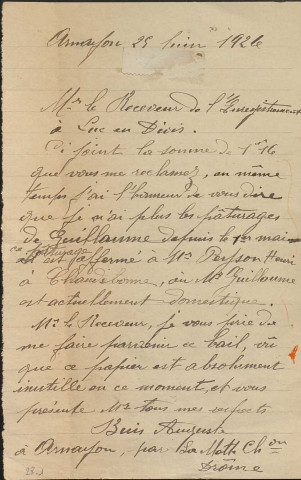 Arnayon 25 Juin 1926
Mr le Receveur de l'Enregistrement
à Luc en Diois.
Ci joint la somme de 1f16
que vous me reclamez, en même
temps j'ai l'honneur de vous dire
que je n'ai plus les pâturages
de Guillaume depuis le 1er mai
ce pâturage
est affermé à Mr Peysson Henri
à Chaudebonne, où Mr Guillaume
est actuellement domestique.
Mr le Receveur, je vous prie de
me faire parvenir ce bail, vû
que ce papier est absolument
inutille en ce moment, et vous
presente Mr tous mes respects
Buis Auguste
à Arnayon, par La Motte Chon
Drôme